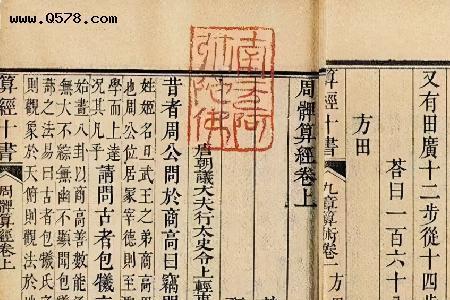 又有田廣十二步從十四步
荅曰一百六十
方田
算經十書 九章算術卷一 方
南无阿
弥陀佛
周髀算經卷上
唐朝議大夫行太史令上輕車
昔者周公問於商高曰竊聞
姓姬名旦武王之弟商高
也周公位居冢宰德則至
學而上達
況其凡乎
請問古者包犧
始畫八卦以商高善數能
無大不綜無幽不顯聞包
蔀之法易曰古者包犧氏
則觀象於天俯則觀法於地
算經十書 周髀算經卷上
www.Q578.com